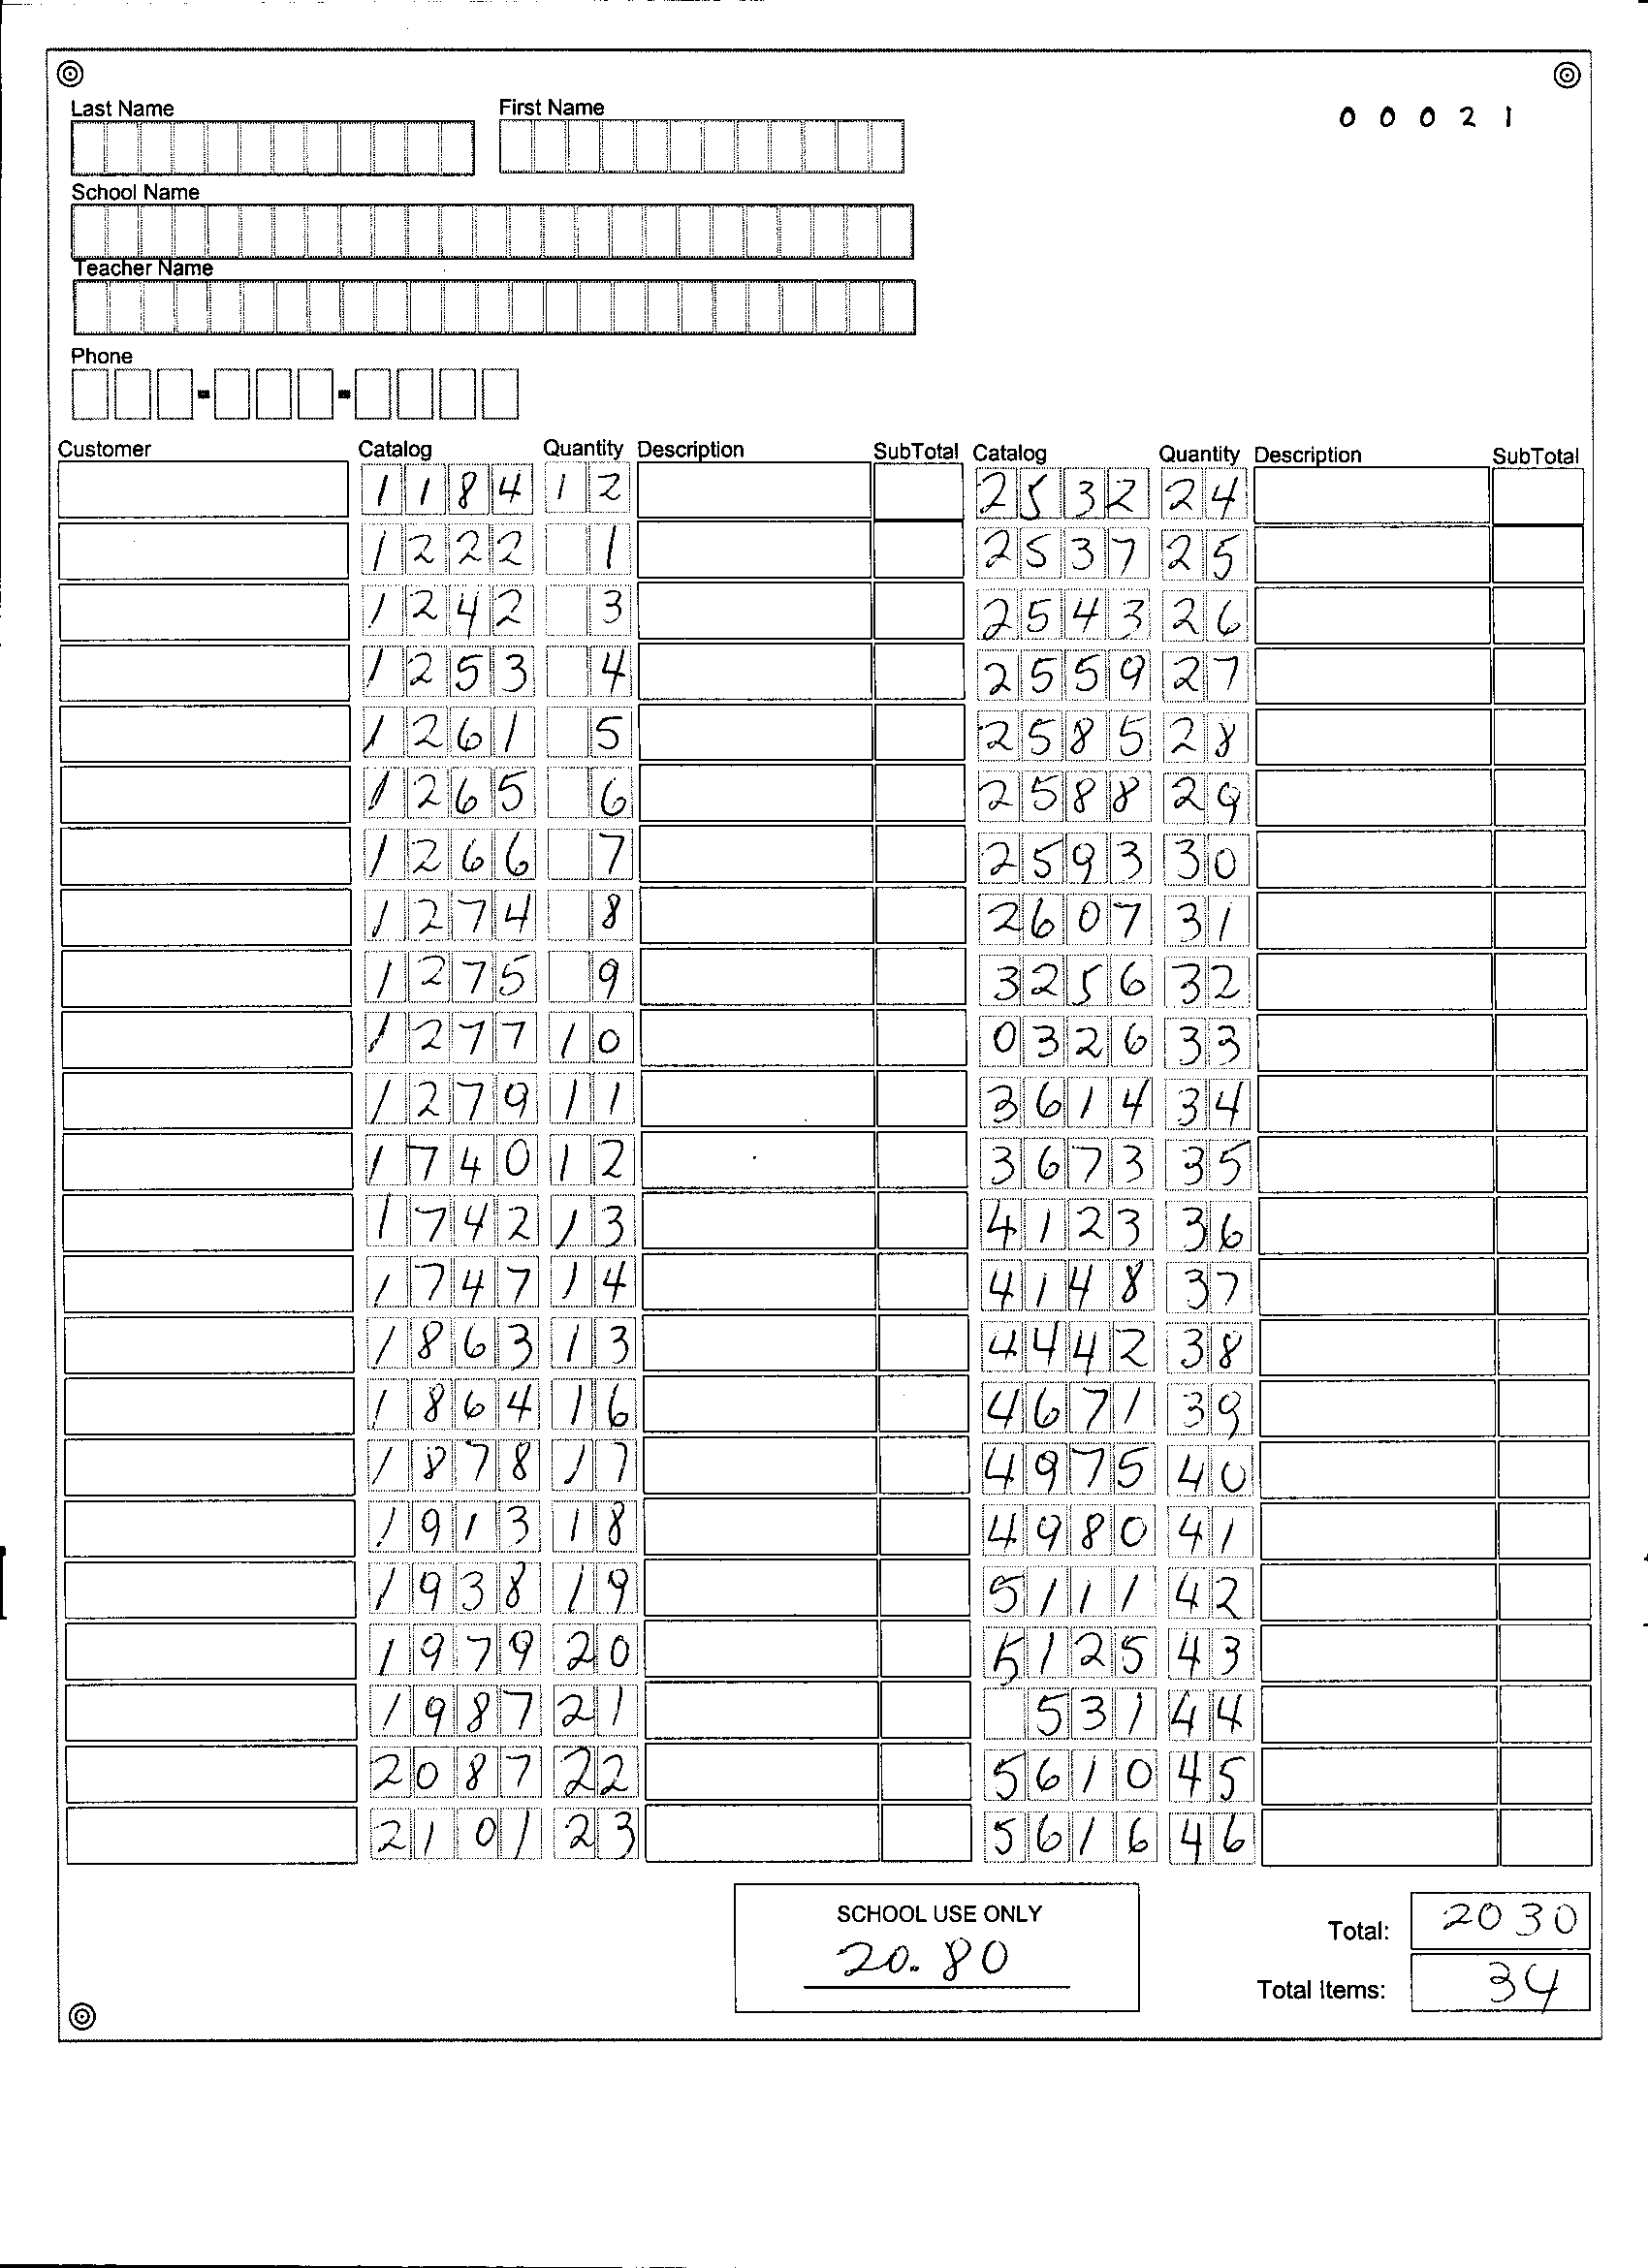 Last Name First Name 00021
School Name
Teacher Name
Phone
Customer Catalog Quantity Description SubTotal Catalog Quantity Description SubTotal
1184 12 2532 24
1222 1 2537 25
1242 3 2543 26
1253 4 2559 27
1261 5 2585 28
1265 6 2588 29
1266 7 2593 30
1274 8 2607 31
1275 9 3256 32
1277 10 0326 33
1279 11 3614 34
1740 12 3673 35
1742 13 4123 36
1747 14 4148 37
1863 13 4442 38
1864 16 4671 39
1878 17 4975 40
1913 18 4980 41
1938 19 5111 42
1979 20 5125 43
1987 21 531 44
2087 22 5610 45
2101 23 5616 46
SCHOOL USE ONLY
20.80
Total: 2030
Total Items: 34